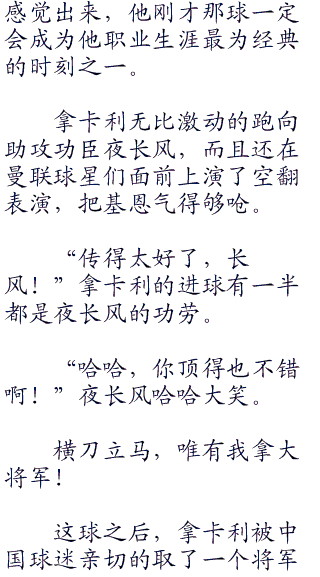 感觉出来，他刚才那球一定
会成为他职业生涯最为经典
的时刻之一。
拿卡利无比激动的跑向
助攻功臣夜长风，而且还在
曼联球星们面前上演了空翻
表演，把基恩气得够呛。
“传得太好了，长
风！”拿卡利的进球有一半
都是夜长风的功劳。
“哈哈，你顶得也不错
啊！”夜长风哈哈大笑。
横刀立马，唯有我拿大
将军！
这球之后，拿卡利被中
国球迷亲切的取了一个将军